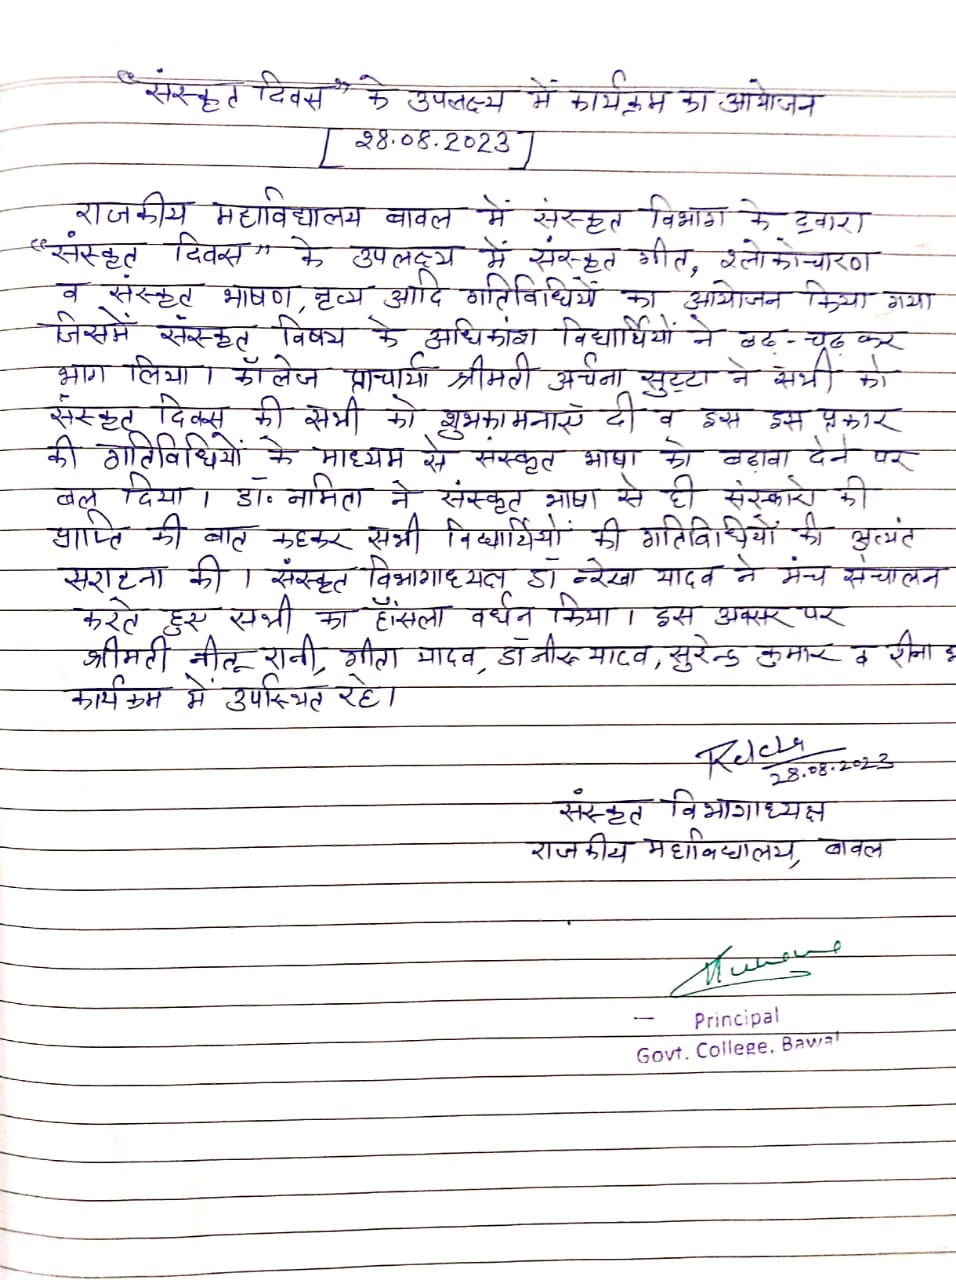 “संस्कृत दिवस” के उपलक्ष्य में कार्यक्रम का आयोजन
[28.08.2023]
राजकीय महाविद्यालय बावल में संस्कृत विभाग के द्वारा
“संस्कृत दिवस” के उपलक्ष्य में संस्कृत गीत, श्लोकोचारण
व संस्कृत भाषण, नृत्य आदि गतिविधियों का आयोजन किया गया
जिसमें संस्कृत विषय के अधिकांश विद्यार्थियों ने बढ़-चढ़ कर
भाग लिया। कॉलेज प्राचार्या श्रीमती अर्चना सुट्टा ने सभी को
संस्कृत दिवस की सभी को शुभकामनाएं दी व इस इस प्रकार
की गतिविधियों के माध्यम से संस्कृत भाषा को बढ़ावा देने पर
बल दिया। डॉ. नमिता ने संस्कृत भाषा से ही संस्कारो की
प्राप्ति की बात कहकर सभी विद्यार्थियों की गतिविधियों की अत्यंत
सराहना की। संस्कृत विभागाध्यक्ष डॉ रेखा यादव ने मंच संचालन
करते हुए सभी का हौंसला वर्धन किया। इस अवसर पर
श्रीमती नीतू रानी, गीता यादव, डॉ नीरू यादव, सुरेन्द्र कुमार व रीना
कार्यक्रम में उपस्थित रहे।
Rekha
28.08.2023
संस्कृत विभागाध्यक्ष
राजकीय महाविद्यालय, बावल
Principal
Govt. College, Bawal